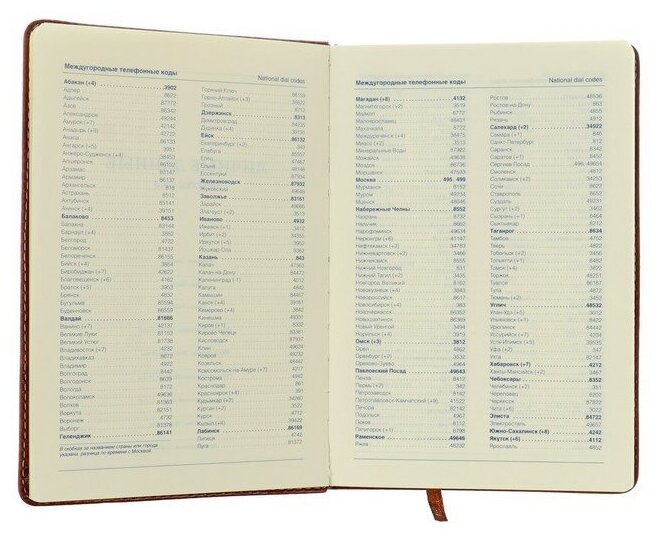 Междугородные телефонные коды
National dial codes
Абакан (+4) 3902
Адлер 8622
Адыгейск 87772
Азов 86342
Александров 49244
Амурск (+7) 42142
Анадырь (+9) 42722
Анапа
Ангарск (+5)
Анжеро-Судженск (+4) 38453
Апшеронск 86152
Арзамас 83147
Армавир 86137
Архангельск 818
Астрахань 8512
Ахтубинск 85141
Ачинск (+4) 39151
Балаково 8453
Балахна 83144
Барнаул (+4)
Белгород 4722
Беломорск 81437
Белореченск 86155
Бийск (+4) 3854
Биробиджан (+7) 42622
Благовещенск (+6) 4162
Братск (+5) 3953
Брянск 4832
Бугульма 85594
Буденновск 86559
Валдай 81666
Ванино (+7) 42137
Великие Луки 81153
Великий Устюг 81738
Владивосток (+7) 4232
Владикавказ 8672
Владимир 4922
Волгоград 8442
Волгодонск 8639
Вологда 8172
Волоколамск 49636
Волхов 81363
Воркута 82151
Воронеж 4732
Выборг 81378
Геленджик 86141
В скобках за названием страны или города
указана разница по времени с Москвой.
Горячий Ключ 86159
Горно-Алтайск (+3) 38822
Грозный 8712
Дзержинск 8313
Димитровград 84235
Дудинка (+4)
Ейск 86132
Екатеринбург (+2) 343
Елабуга
Елец 47467
Ельня
Ессентуки 87934
Железноводск 87932
Жуковский 49648
Заволжье 83161
Зарайск 49666
Златоуст (+2) 3513
Иваново 4932
Ижевск (+1) 3412
Ирбит (+2) 34355
Иркутск (+5) 3952
Йошкар-Ола 8362
Казань 843
Калач 47363
Калач-на-Дону 84472
Калининград (-1) 4012
Калуга 4842
Канск (+4) 39161
Кемерово (+4) 3842
Кинешма 49331
Киров (+1) 8332
Кирово-Чепецк 83361
Кисловодск 87937
Клин 49624
Ковров 49232
Козельск 48442
Комсомольск-на-Амуре (+7) 4217
Кострома 4942
Краснодар 861
Красноярск (+4) 391
Кудымкар (+2) 34260
Курган (+2) 3522
Курск 4712
Кызыл (+4) 39422
Лабинск 86169
Липецк 4742
Луга 81372
Междугородные телефонные коды
National dial codes
Магадан (+8) 4132
Магнитогорск (+2) 3519
Майкоп 8772
Малоярославец 48431
Махачкала 8722
Междуреченск (+4) 38475
Миасс (+2) 3513
Минеральные Воды 87922
Можайск 49638
Моздок 86736
Моршанск 47533
Москва 495, 499
Мурманск 8152
Муром 49234
Мценск 48646
Набережные Челны 8552
Назрань 8732
Нальчик 8662
Нарофоминск 49634
Нерюнгри (+6) 41147
Нефтекамск (+2) 34783
Нижневартовск (+2) 3466
Нижнекамск 8555
Нижний Новгород 831
Нижний Тагил (+2) 3435
Новгород Великий 8162
Новокузнецк (+4) 3843
Новороссийск 8617
Новосибирск (+4) 383
Новочеркасск
Новошахтинск
Новый Уренгой 3494
Нарьян-Мар 81853
Омск (+3) 3812
Орел 4862
Оренбург (+2) 3532
Орехово-Зуево 4964
Павловский Посад 49643
Пенза 8412
Пермь (+2) 342
Петрозаводск 8142
Петропавловск-Камчатский (+9)
Печора 82142
Подольск 4967
Псков 8112
Пятигорск (+1) 8793
Раменское 49646
Ржев
Ростов 48536
Ростов-на-Дону 863
Рыбинск 4855
Рязань 4912
Салехард (+2) 34922
Самара (+1) 846
Санкт-Петербург 812
Саранск 8342
Саратов (+1) 8452
Сергиев Посад 496, 49654
Смоленск 4812
Соликамск (+2) 34253
Сочи 8622
Ставрополь 8652
Суздаль 49231
Сургут (+2) 3462
Сызрань (+1) 8464
Сыктывкар 8212
Таганрог 8634
Тамбов 4752
Тверь 4822
Тобольск (+2) 3456
Тольятти (+1) 8482
Томск (+4) 3822
Торжок 48251
Туапсе 86167
Тула 4872
Тюмень (+2) 3452
Углич 48532
Улан-Удэ (+5) 3012
Ульяновск (+1) 8422
Урюпинск 84442
Уссурийск (+7) 4234
Усть-Илимск (+5) 39535
Уфа (+2) 347
Ухта 82147
Хабаровск (+7) 4212
Ханты-Мансийск (+2) 3467
Чебоксары 8352
Челябинск (+2) 351
Череповец 8202
Черкесск 87822
Чита (+6) 3022
Элиста 84722
Электросталь 49657
Южно-Сахалинск (+8) 4242
Якутск (+6) 4112
Ярославль 4852